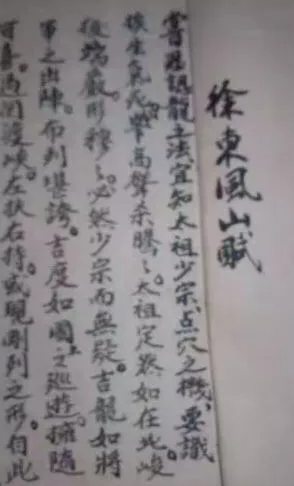 徐東風山賦
嘗思認龍立法宜知太祖少宗点穴之機、要識
生氣死。高聳杀騰〻。太祖定然如在此。峻
後端嚴形穆〻。必然少宗而無疑。吉龍如將
軍之出陣。布列堪誇。吉度如國王之巡遊。擁隨
可喜。過関渡峽。左扶右持。或現剛列之形。自此